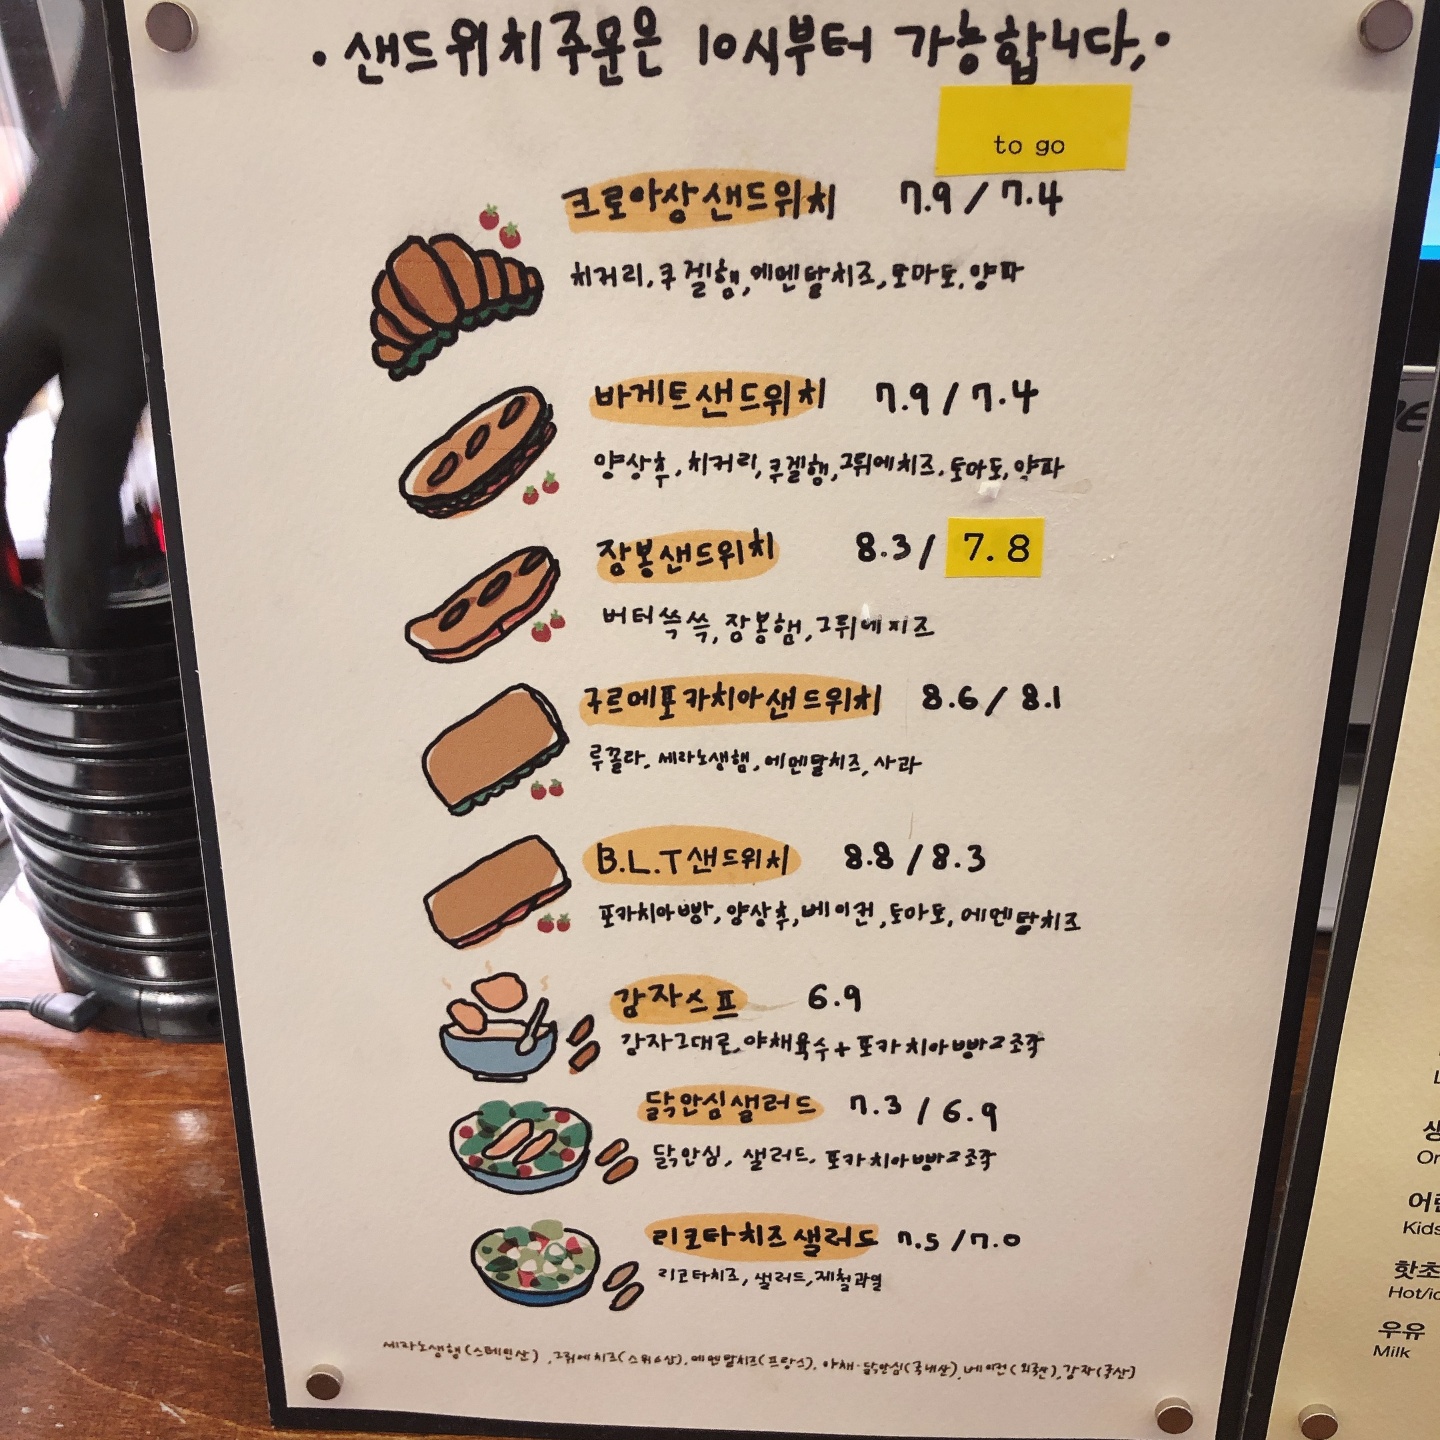 • 샌드위치주문은 10시부터 가능합니다. •
to go
크로아상샌드위치 7.9 / 7.4
치커리, 쿠겔햄, 에멘탈치즈, 토마토, 양파
바게트샌드위치 7.9 / 7.4
양상추, 치커리, 쿠겔햄, 그뤼에치즈, 토마토, 양파
장봉샌드위치 8.3 / 7.8
버터쓱쓱, 장봉햄, 그뤼에치즈
구르메포카치아샌드위치 8.6 / 8.1
루꼴라, 세라노생햄, 에멘탈치즈, 사과
B.L.T샌드위치 8.8 / 8.3
포카치아빵, 양상추, 베이컨, 토마토, 에멘탈치즈
감자스프 6.9
감자그대로, 야채육수 + 포카치아빵2조각
닭안심샐러드 7.3 / 6.9
닭안심, 샐러드, 포카치아빵2조각
리코타치즈샐러드 7.5 / 7.0
리코타치즈, 샐러드, 제철과일
세라노생햄(스페인산), 그뤼에치즈(스위스산), 에멘탈치즈(프랑스), 야채·닭안심(국내산), 베이컨(외국산), 감자(국산)
어린
Kids
핫초
Hot/ic
우유
Milk